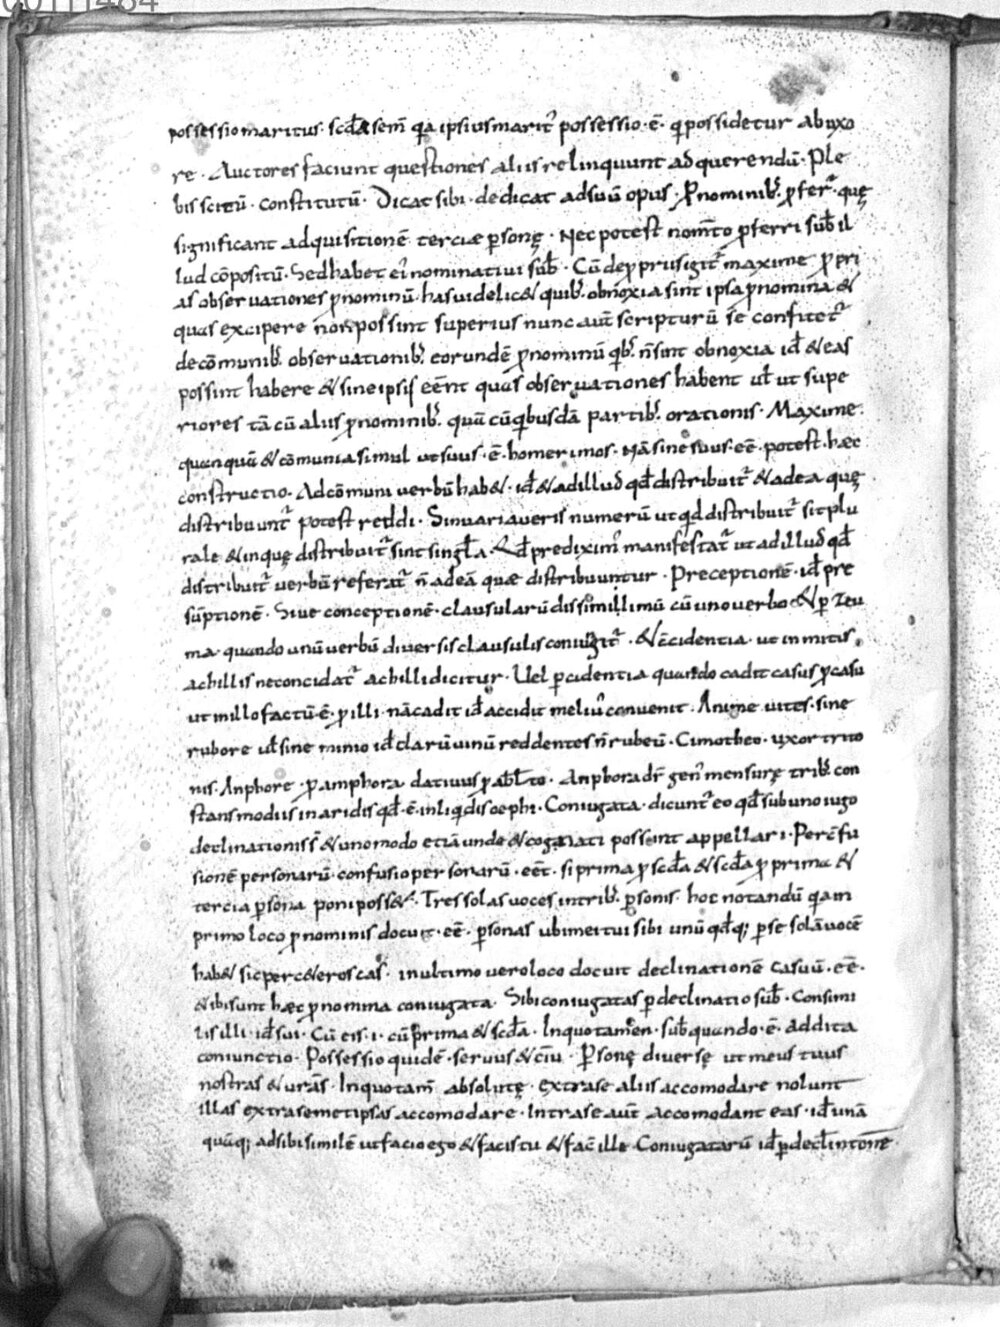 00111484
possessio maritus · scd̄a sem̄ q̄a ipsius marit᷒ possessio · ē · q̄ possidetur ab uxo
re · Auctores faciunt questiones aliis relinquunt ad querendū · Ple
bis scitū · constitutū · Dicat sibi · dedicat ad suū opus · p̄nominib; p̄fer᷒ · quę
significant adquisitionē terciæ p̄sonę · Nec potest nom̄to p̄ferri sub̄ il
lud cōpositū · Sed habet ei᷒ nominativi sub̄ · Cū de p̄prus igit᷒ maxime p̄pri
as observationes p̄nominū · has videlic& quib; obnoxia sint ipsa p̄nomina &
quas excipere non possint superius nunc aūt scripturū se confitet᷒
de cōmunib; observationib; eorundē p̄nominū qb; n̄ sint obnoxia id̄ & eas
possint habere & sine ipsis eēnt quas observationes habent ul̄ ut supe
riores tā cū aliis p̄nominib; quā cū q̄busdā partib; orationis · Maxime ·
quanquā & cōmunia simul ut suus · ē · homerimos · Nā sine suus · eē · potest · hæc
constructio · Ad cōmuni verbū hab& · id̄ & ad illud qd̄ distribuit᷒ & ad ea quę
distribuunt᷒ potest reddi · Sin variaveris numerū ut qd distribuit᷒ sit plu
rale & in quę distribuit᷒ sint singl̄a · Qd̄ predixim᷒ manifestat᷒ ut ad illud qd̄
distribuit᷒ verbū referat᷒ n̄ ad eā quæ distribuuntur · Preceptionē · id̄ pre
sūptionē · Sive conceptionē · clausularū dissimillimū cū uno verbo & p̄ zeu
ma · quando unū verbū diversis clausulis coniugit᷒ · & ēcidentia · ut in mitis
achillis ne concidat᷒ achilli dicitur · Vel p̄cidentia quando cadit casus p̄ casu
ut in illo factū · ē · p̄ illi · nā cadit id̄ accidit meli᷒ convenit · Anime vites · sine
rubore ul̄ sine minio id̄ clarū vinū reddentes n̄ rubeū · Cimotheo · uxor trito
nis · Anphore · p̄ amphora dativus p̄ abl̄to · Anphora dr̄ gen᷒ mensurę trib; con
stans modiis in aridis qd̄ · ē · in liq̄dis oephi · Coniugata · dicunt᷒ eo qd̄ sub uno iugo
declinationis s̄ & uno modo etiā unde & cognati possunt appellari · Per cfu
sionē personarū · confusio personarū · eēt · si prima p̄ scd̄a & scd̄a p̄ prima &
tercia p̄sona poni poss& · Tres solas voces in trib; p̄sonis · hoc notandū q̄a in
primo loco p̄nominis docuit · eē · p̄sonas ubi mei tui sibi unū qd̄q; p̄ se solā vocē
hab& sic per c&eros cas᷒ · in ultimo vero loco docuit declinationē casuū · eē ·
& ibi sunt hæc p̄nomina coniugata · Sibi coniugatas p̄ declinatio sub̄ · Consimi
lis illi · id̄ sui · Cū eis · i · cū prima & scd̄a · In quo tamen · sub̄ quando · ē · addita
coniunctio · Possessio quidē · servus & c̄iu · P̄sonę diversę ut meus tuus
nostras & vrās · In quo tam̄ absolutę · extra se aliis accomodare nolunt
illas extra semetipsas accomodare · Intra se aūt accomodant eas · id̄ unā
quāq; ad sibi similē ut facio ego & facis tu & fac̄ ille · Coniugatarū id̄ p̄ decl̄intōnē ·